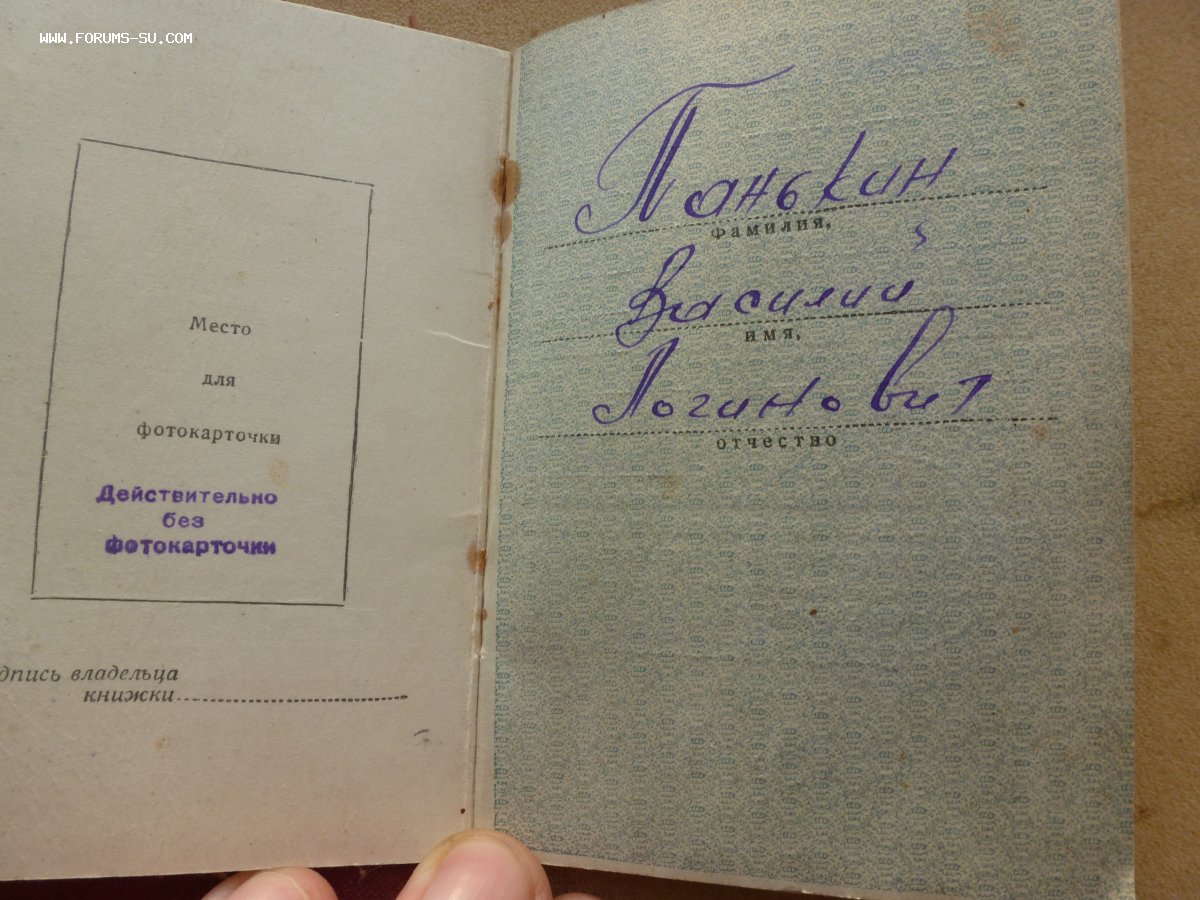 WWW.FORUMS-SU.COM
Место
для
фотокарточки
Действительно
без
фотокарточки
дпись владельца
книжки
Панькин
фамилия,
Василий
имя,
Логинович
отчество